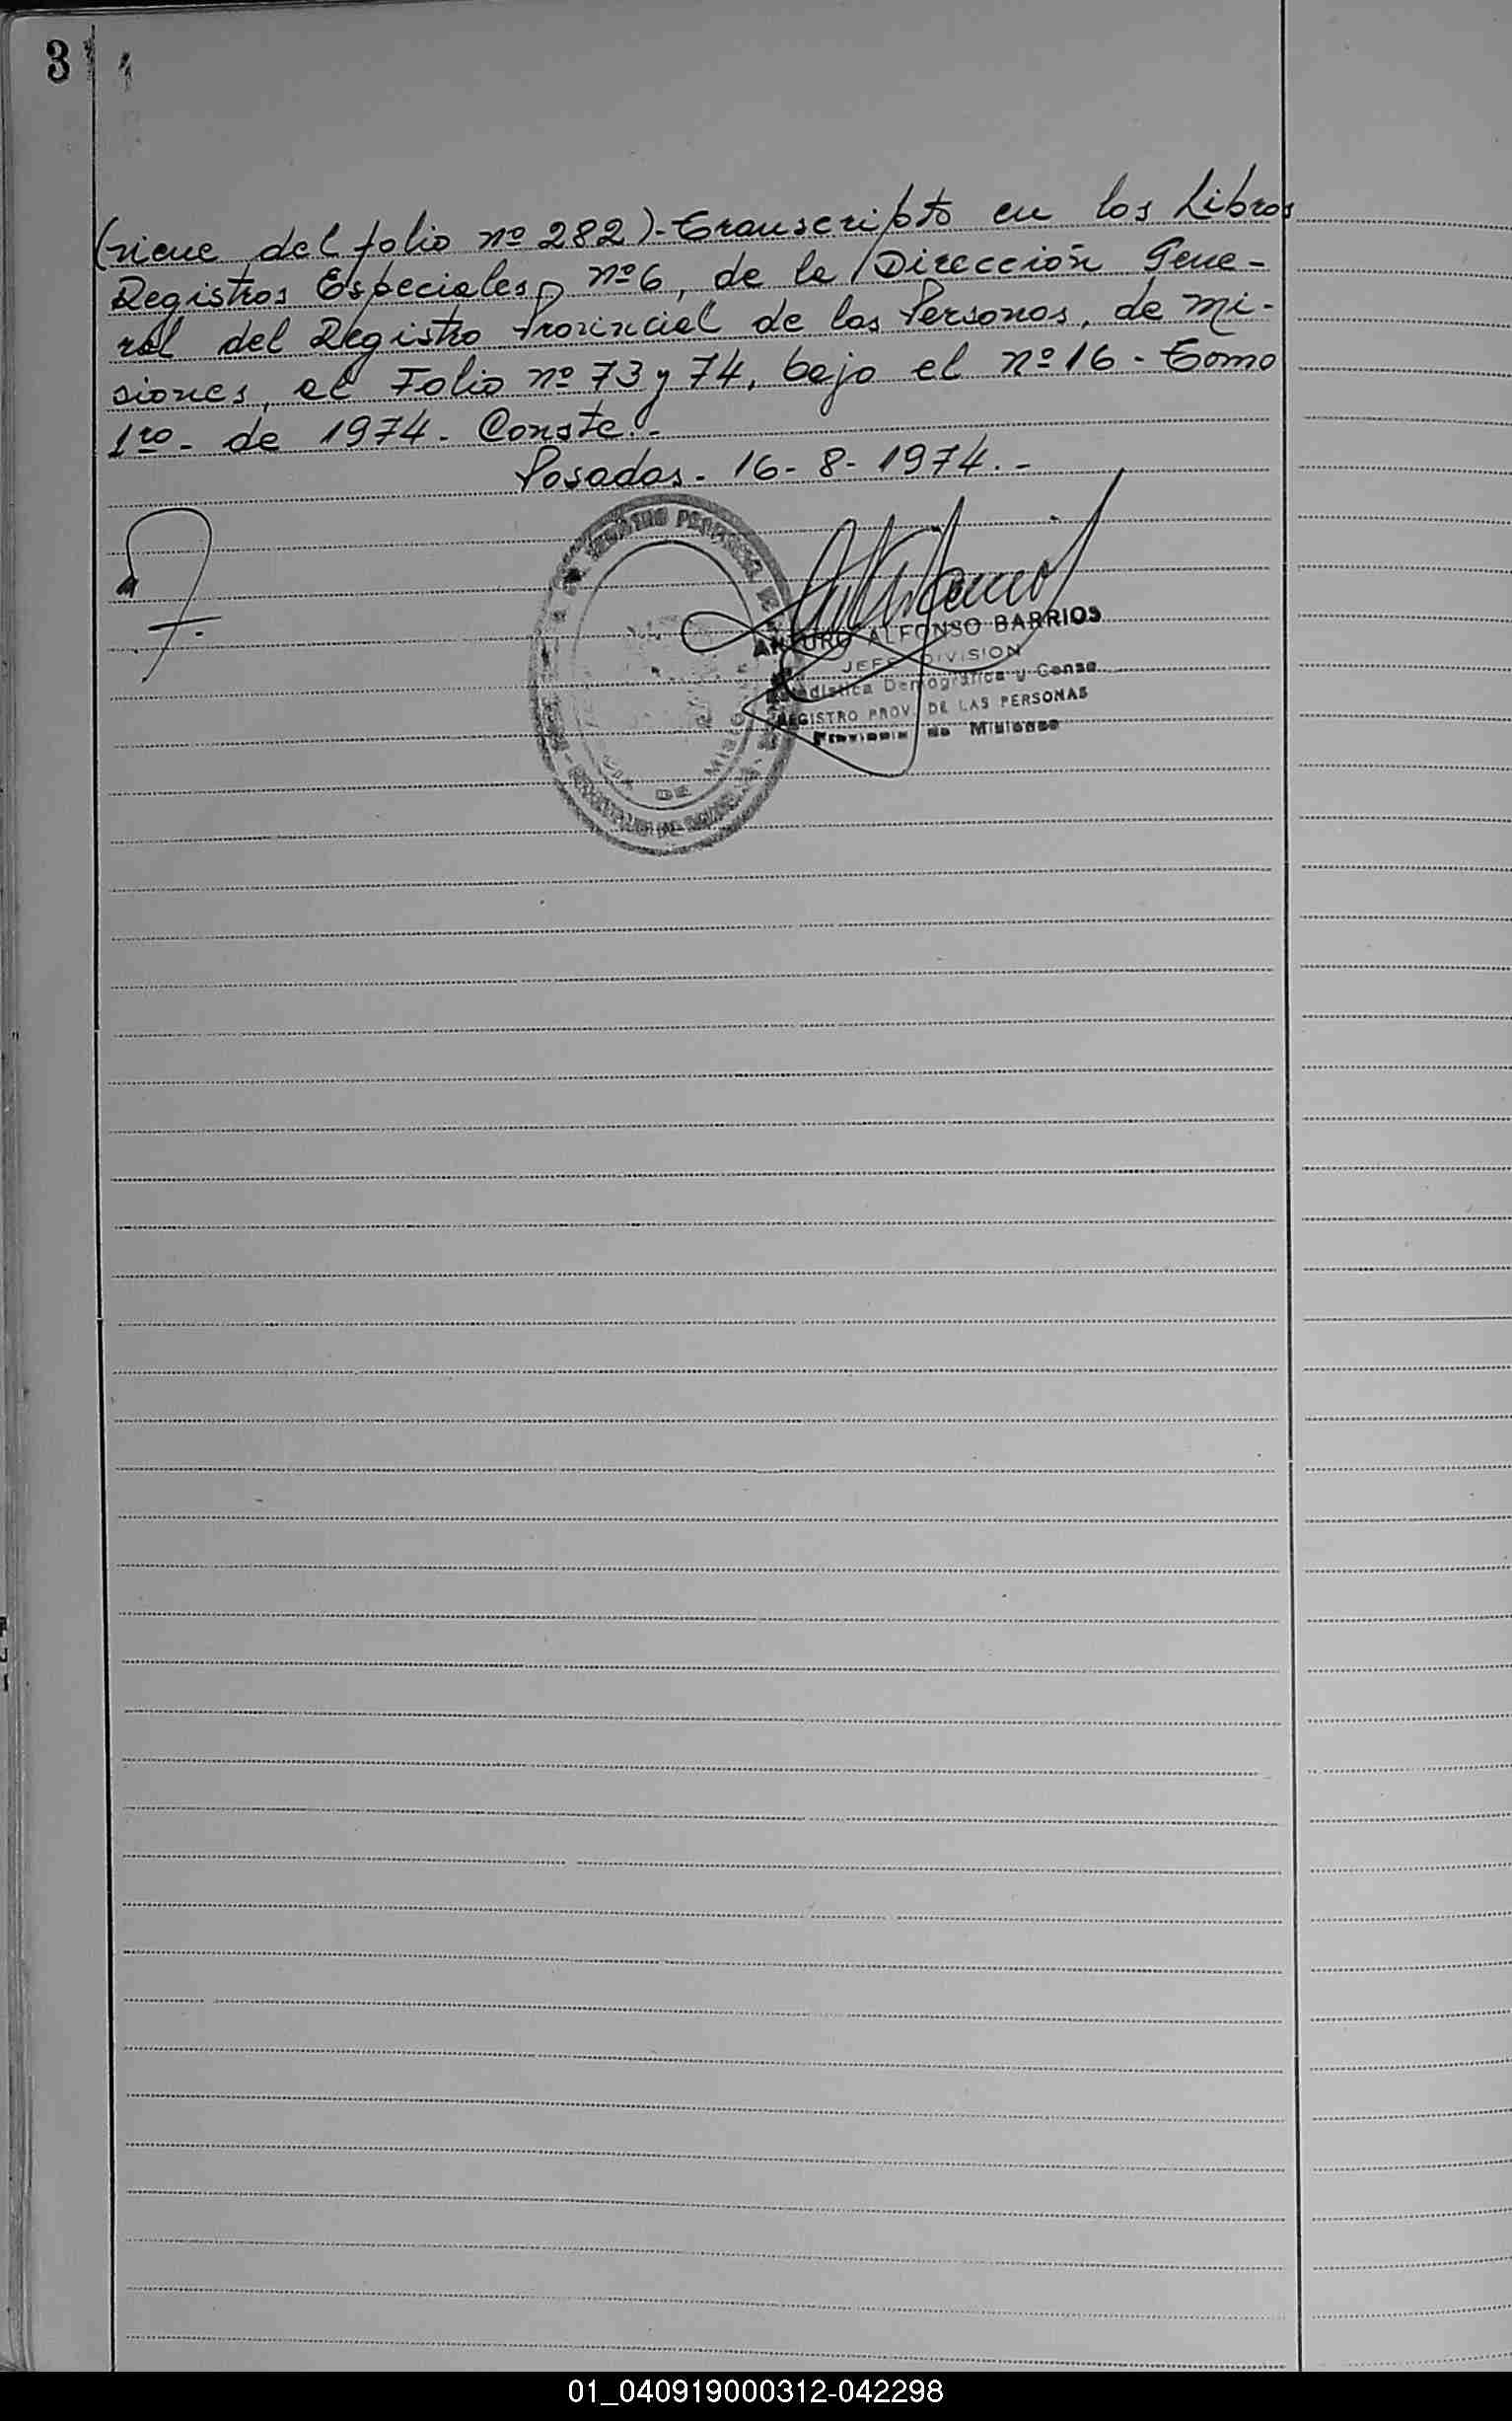 3
(viene del folio nº 282)-Transcripto en los Libros
Registros Especiales, nº 6, de la Dirección Gene-
ral del Registro Provincial de las Personas, de Mi-
siones, al Folio nº 73 y 74, bajo el nº 16 - Tomo
1ro- de 1974. Conste.-
Posadas - 16-8-1974.-
ARTURO ALFONSO BARRIOS
JEFE DIVISION
Demográfica y Censo
REGISTRO PROV. DE LAS PERSONAS
Provincia de Misiones
01_040919000312-042298